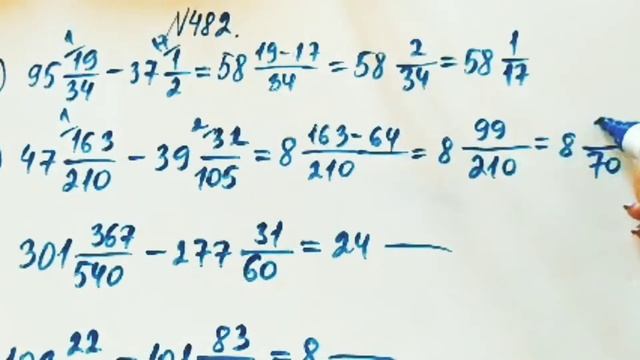 №482.
) 95 19/34 - 37 1/2 = 58 (19-17)/34 = 58 2/34 = 58 1/17
) 47 163/210 - 39 32/105 = 8 (163-64)/210 = 8 99/210 = 8 /70
301 367/540 - 277 31/60 = 24
22 - 101 83 = 8